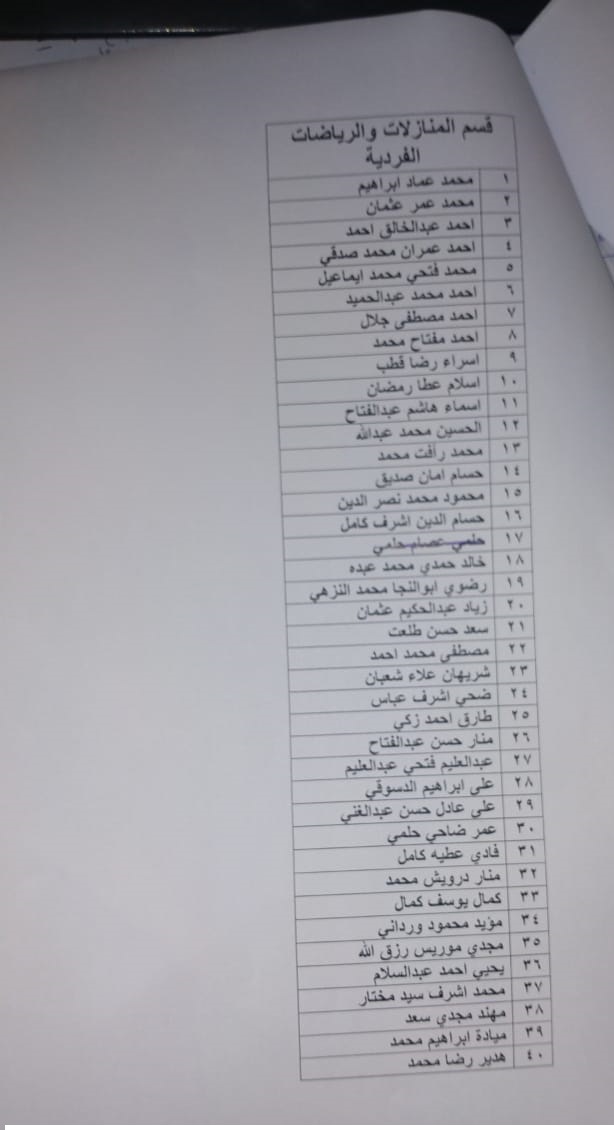 قسم المنازلات والرياضات
الفردية
١ محمد عماد ابراهيم
٢ محمد عمر عثمان
٣ احمد عبدالخالق احمد
٤ احمد عمران محمد صدقي
٥ محمد فتحي محمد ايماعيل
٦ احمد محمد عبدالحميد
٧ احمد مصطفى جلال
٨ احمد مفتاح محمد
٩ اسراء رضا قطب
١٠ اسلام عطا رمضان
١١ اسماء هاشم عبدالفتاح
١٢ الحسين محمد عبدالله
١٣ محمد رأفت محمد
١٤ حسام امان صديق
١٥ محمود محمد نصر الدين
١٦ حسام الدين اشرف كامل
١٧ حلمي عصام حلمي
١٨ خالد حمدي محمد عبده
١٩ رضوي ابوالنجا محمد النزهي
٢٠ زياد عبدالحكيم عثمان
٢١ سعد حسن طلعت
٢٢ مصطفى محمد احمد
٢٣ شريهان علاء شعبان
٢٤ ضحي اشرف عباس
٢٥ طارق احمد زكي
٢٦ منار حسن عبدالفتاح
٢٧ عبدالعليم فتحي عبدالعليم
٢٨ على ابراهيم الدسوقي
٢٩ على عادل حسن عبدالغني
٣٠ عمر ضاحي حلمي
٣١ فادي عطيه كامل
٣٢ منار درويش محمد
٣٣ كمال يوسف كمال
٣٤ مؤيد محمود ورداني
٣٥ مجدي موريس رزق الله
٣٦ يحيي احمد عبدالسلام
٣٧ محمد اشرف سيد مختار
٣٨ مهند مجدي سعد
٣٩ ميادة ابراهيم محمد
٤٠ هدير رضا محمد